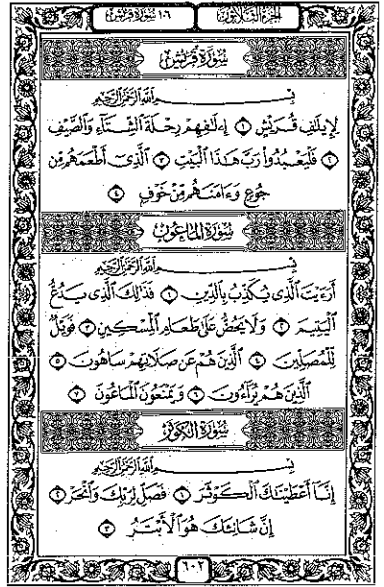 الجزء الثلاثون
١٠٦ سورة قريش
سُورَةُ قُرَيْشٍ
بِسْمِ اللَّهِ الرَّحْمَٰنِ الرَّحِيمِ
لِإِيلَٰفِ قُرَيْشٍ ١ إِۦلَٰفِهِمْ رِحْلَةَ ٱلشِّتَآءِ وَٱلصَّيْفِ
٢ فَلْيَعْبُدُوا۟ رَبَّ هَٰذَا ٱلْبَيْتِ ٣ ٱلَّذِىٓ أَطْعَمَهُم مِّن
جُوعٍ وَءَامَنَهُم مِّنْ خَوْفٍۭ ٤
سُورَةُ المَاعُونِ
بِسْمِ اللَّهِ الرَّحْمَٰنِ الرَّحِيمِ
أَرَءَيْتَ ٱلَّذِى يُكَذِّبُ بِٱلدِّينِ ١ فَذَٰلِكَ ٱلَّذِى يَدُعُّ
ٱلْيَتِيمَ ٢ وَلَا يَحُضُّ عَلَىٰ طَعَامِ ٱلْمِسْكِينِ ٣ فَوَيْلٌ
لِّلْمُصَلِّينَ ٤ ٱلَّذِينَ هُمْ عَن صَلَاتِهِمْ سَاهُونَ ٥
ٱلَّذِينَ هُمْ يُرَآءُونَ ٦ وَيَمْنَعُونَ ٱلْمَاعُونَ ٧
سُورَةُ الكَوْثَرِ
بِسْمِ اللَّهِ الرَّحْمَٰنِ الرَّحِيمِ
إِنَّآ أَعْطَيْنَٰكَ ٱلْكَوْثَرَ ١ فَصَلِّ لِرَبِّكَ وَٱنْحَرْ ٢
إِنَّ شَانِئَكَ هُوَ ٱلْأَبْتَرُ ٣
٦٠٢